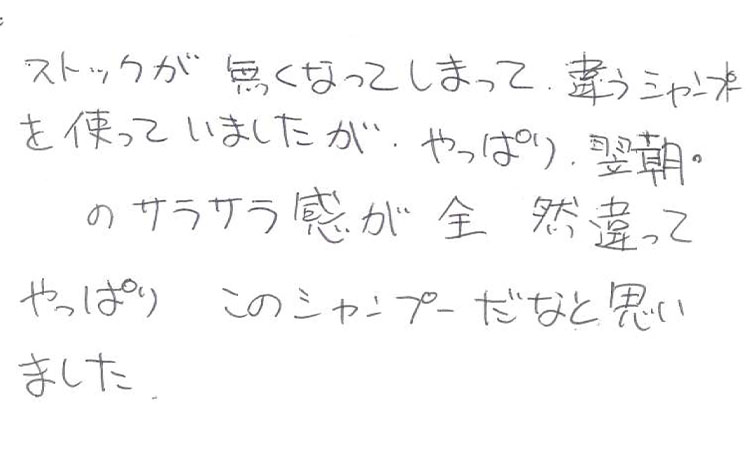 ストックが 無くなってしまって、違うシャンプー
を使っていましたが、やっぱり、翌朝、
のサラサラ感が 全 然違って
やっぱり このシャンプーだなと思い
ました。